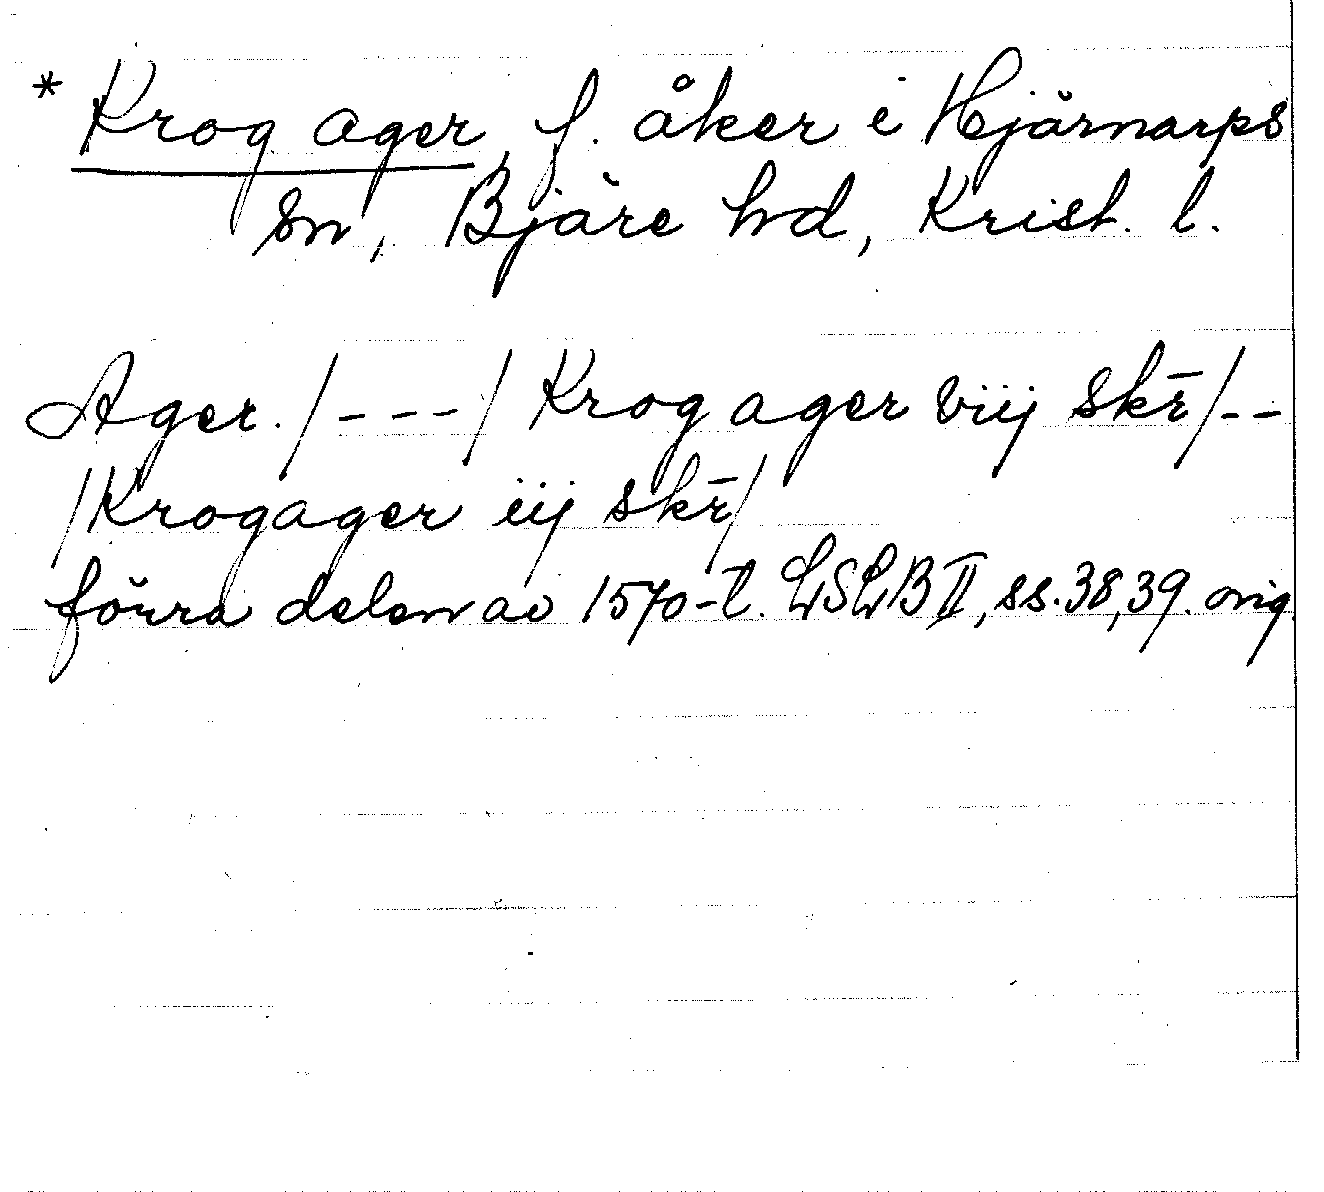 * Krog ager, f. åker i Hjärnarps
sn, Bjäre hd, Krist. l.
Ager. /---/ Krog ager viij skr̄/--
/Krogager iij skr̄/
förra delen av 1570-t. LSLB II, ss. 38, 39. orig.